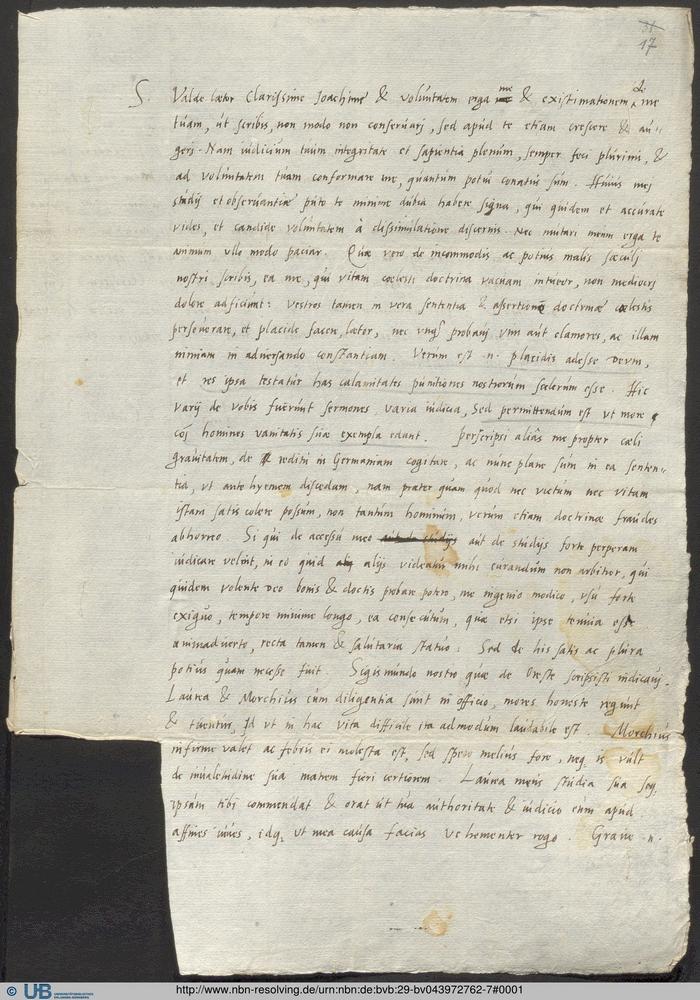 31
17
S. Valde laetor Clarissime Joachime & voluntatem erga me & existimationem de me
tuam, ut scribis, non modo non conservari, sed apud te etiam crescere & au-
geri. Nam iudicium tuum integritate et sapientia plenum, semper feci plurimi, &
ad voluntatem tuam conformare me, quantum potui conatus sum. Huius mei
studij et observantiae puto te minime dubia habere signa, qui quidem et accurate
vides, et candide voluntatem à dissimulatione discernis. Nec mutari meum erga te
animum ullo modo patiar. Quae vero de incommodis ac potius malis saeculj
nostri scribis, ea me, qui vitam coelesti doctrina vacuam intueor, non mediocrj
dolore adficiunt: vestros tamen in vera sententia & assertione doctrinae coelestis
perseverare, et placide facere, laetor, nec unq. probavj vim aut clamores, ac illam
nimiam in adversando constantiam. Verum est .n. placidis adesse Deum,
et res ipsa testatur has calamitates punitiones nostrorum scelerum esse. Hic
varij de vobis fuerunt sermones, varia iudicia, Sed permittendum est ut more
homines vanitatis suae exempla edant. Perscripsi aliàs me propter caeli
gravitatem, de reditu in Germaniam cogitare, ac nunc plane sum in ea senten-
tia, ut ante hyemem discedam, nam praeter quam quod nec victum nec vitam
istam satis colere possum, non tantum hominum, verum etiam doctrinae fraudes
abhorreo. Si qui de accessu meo aut de studijs forte perperam
iudicare velint, in eo quid alijs videatur mihi curandum non arbitror, qui
quidem volente Deo bonis & doctis probare potero, me ingenio modico, usu forte
exiguo, tempore minime longo, ea consecutum, quae etsi ipse tenuia esse
animadverto, recta tamen & salutaria statuo: Sed de his satis ac plura
potius quam necesse fuit. Sigismundo nostro quae de Oreste scripsisti indicavj.
Laurea & Morchius cum diligentia sunt in officio, mores honeste regunt
& tuentur, Id ut in hac vita difficile ita admodum laudabile est. Morchius
infirme valet ac febris ei molesta est, sed spero melius fore, neq. is vult
de invaletudine sua matrem fieri certiorem. Laurea meus studia sua seq.
ipsum tibi commendat & orat ut tua authoritate & iudicio eum apud
affines iuves, idq. ut mea causa facias vehementer rogo. Grave .n.
UB
http://www.nbn-resolving.de/urn:nbn:de:bvb:29-bv043972762-7#0001